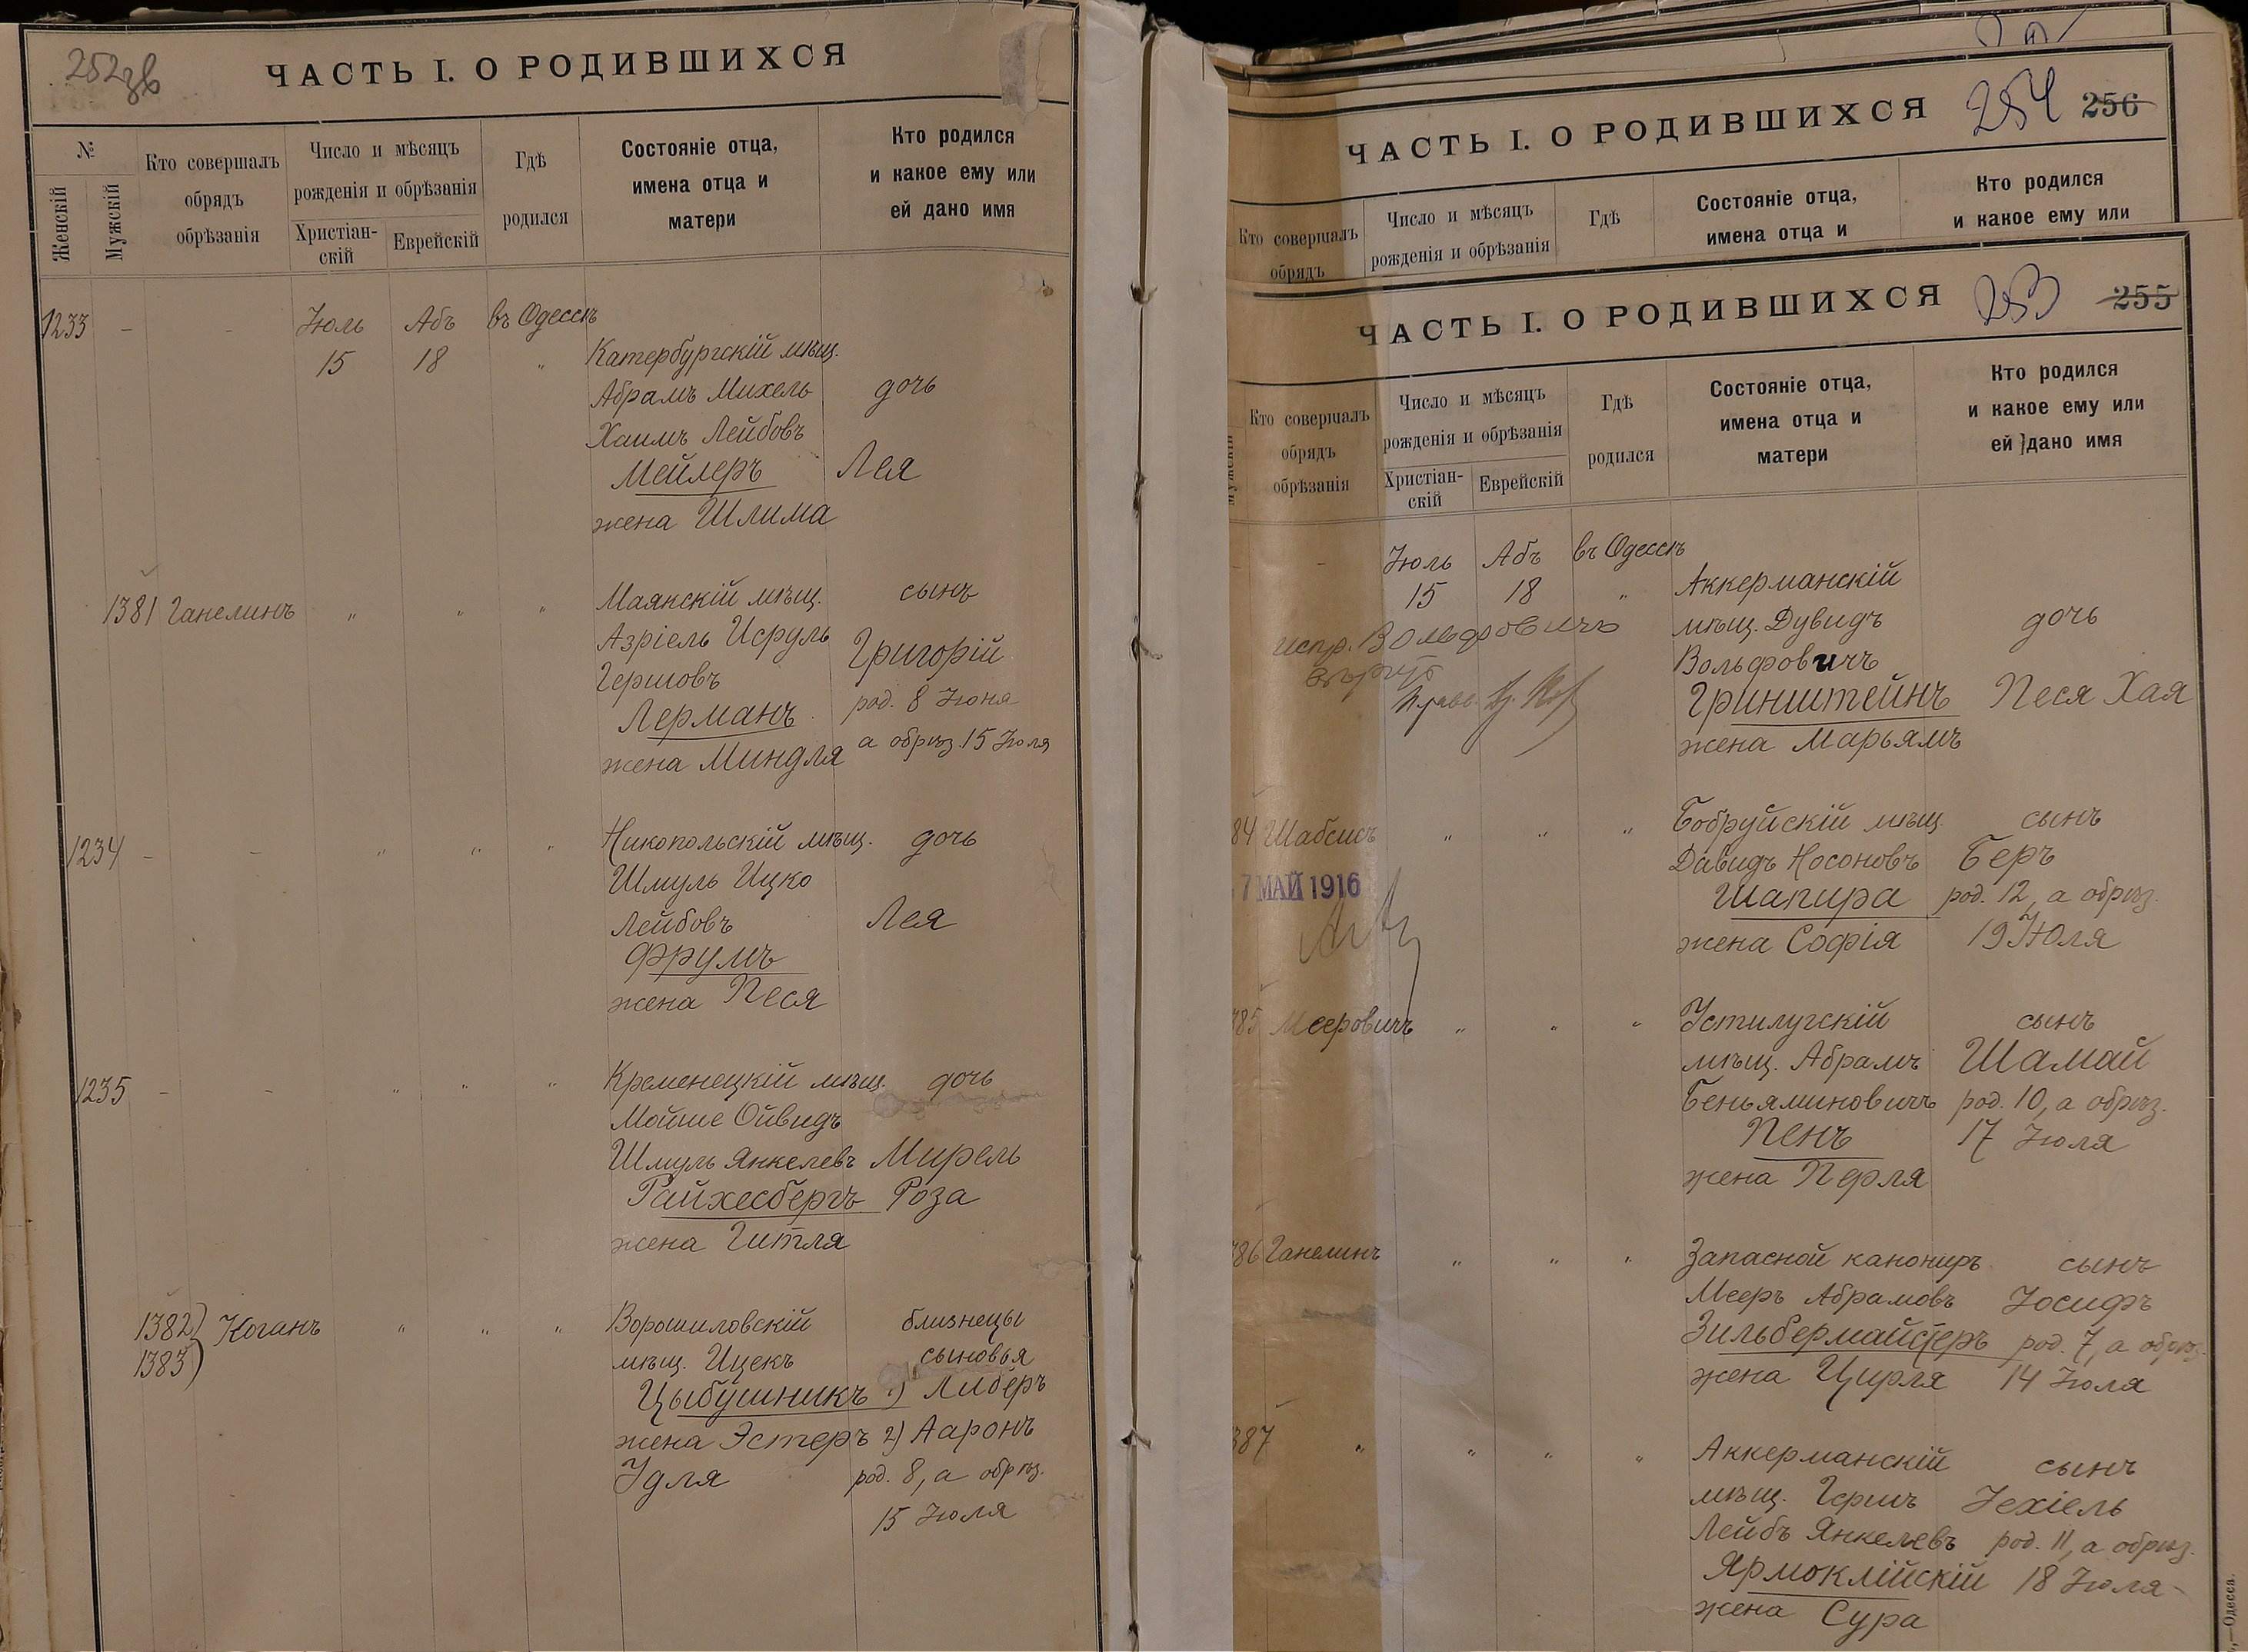 252зв
ЧАСТЬ I. О РОДИВШИХСЯ
№
Женскій
Мужскій
Кто совершалъ
обрядъ
обрѣзанія
Число и мѣсяцъ
рожденія и обрѣзанія
Христіан-
скій
Еврейскій
Гдѣ
родился
Состояніе отца,
имена отца и
матери
Кто родился
и какое ему или
ей дано имя
1233 - - Іюль Абъ въ Одессѣ
15 18 " Катербургскій мѣщ.
Абрамъ Михель дочь
Хаимъ Лейбовъ
Мейлеръ Лея
жена Шлима
1381 Ганелинъ " " " Маякскій мѣщ. сынъ
Азріель Исруль Григорій
Гершовъ род. 8 Іюня
Лерманъ а обрѣз. 15 Іюля
жена Миндля
1234 - - " " " Никопольскій мѣщ. дочь
Шмуль Ицко
Лейбовъ Лея
Фрумъ
жена Песя
1235 - - " " " Кременецкій мѣщ. дочь
Мойше Ойвидъ
Шмуль Янкелевъ Мирель
Райхесбергъ Роза
жена Гитля
1382) Коганъ " " " Ворошиловскій близнецы
1383) мѣщ. Ицекъ сыновья
Цыбушникъ 1) Либеръ
жена Эстеръ 2) Ааронъ
Идля род. 8, а обрѣз.
15 Іюля
ЧАСТЬ I. О РОДИВШИХСЯ 254 256
Кто совершалъ
обрядъ
Число и мѣсяцъ
рожденія и обрѣзанія
Гдѣ
Состояніе отца,
имена отца и
Кто родился
и какое ему или
ЧАСТЬ I. О РОДИВШИХСЯ 253 255
Кто совершалъ
обрядъ
обрѣзанія
Число и мѣсяцъ
рожденія и обрѣзанія
Христіан-
скій
Еврейскій
Гдѣ
родился
Состояніе отца,
имена отца и
матери
Кто родился
и какое ему или
ей дано имя
- - Іюль Абъ въ Одессѣ
15 18 " Аккерманскій
испр. Вольфовичъ мѣщ. Дувидъ дочь
вѣрить Вольфовичъ
Гринштейнъ Песя Хая
жена Марьямъ
84 Шабсисъ " " " Бобруйскій мѣщ. сынъ
Давидъ Носоновъ Беръ
7 МАЙ 1916 Шапира род. 12, а обрѣз.
жена Софія 19 Июля
385 Мееровичъ " " " Устилугскій сынъ
мѣщ. Абрамъ Шамай
Беньяминовичъ род. 10, а обрѣз.
Пенъ 17 Іюля
жена Перля
386 Ганелинъ " " " Запасной канониръ сынъ
Мееръ Абрамовъ Іосифъ
Зильбермайстеръ род. 7, а обрѣз.
жена Цирля 14 Іюля
387 " " " " Аккерманскій сынъ
мѣщ. Гершъ Іехіель
Лейбъ Янкелевъ род. 11, а обрѣз.
Ярмоклійскій 18 Іюля
жена Сура
Одесса.